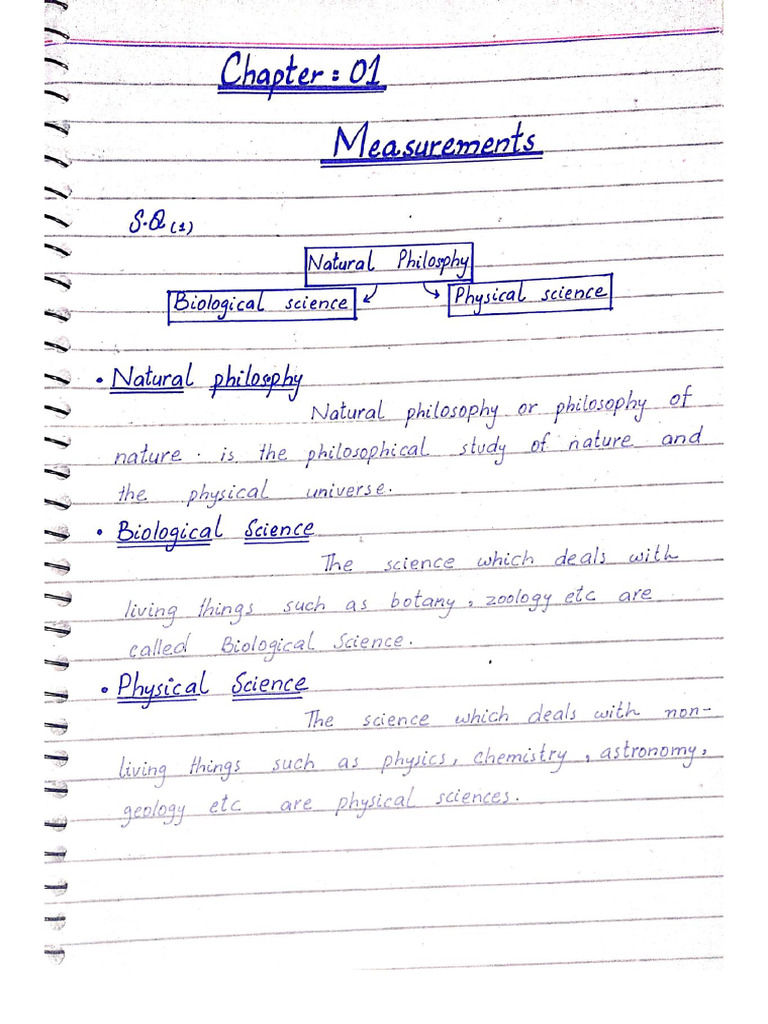 Chapter : 01
Measurements
S.Q (1)
Natural Philosphy
Biological science
Physical science
• Natural philosphy
Natural philosophy or philosophy of
nature. is the philosophical study of nature and
the physical universe.
• Biological Science
The science which deals with
living things such as botany, zoology etc are
called Biological Science.
• Physical Science
The science which deals with non-
living things such as physics, chemistry, astronomy,
geology etc are physical sciences.